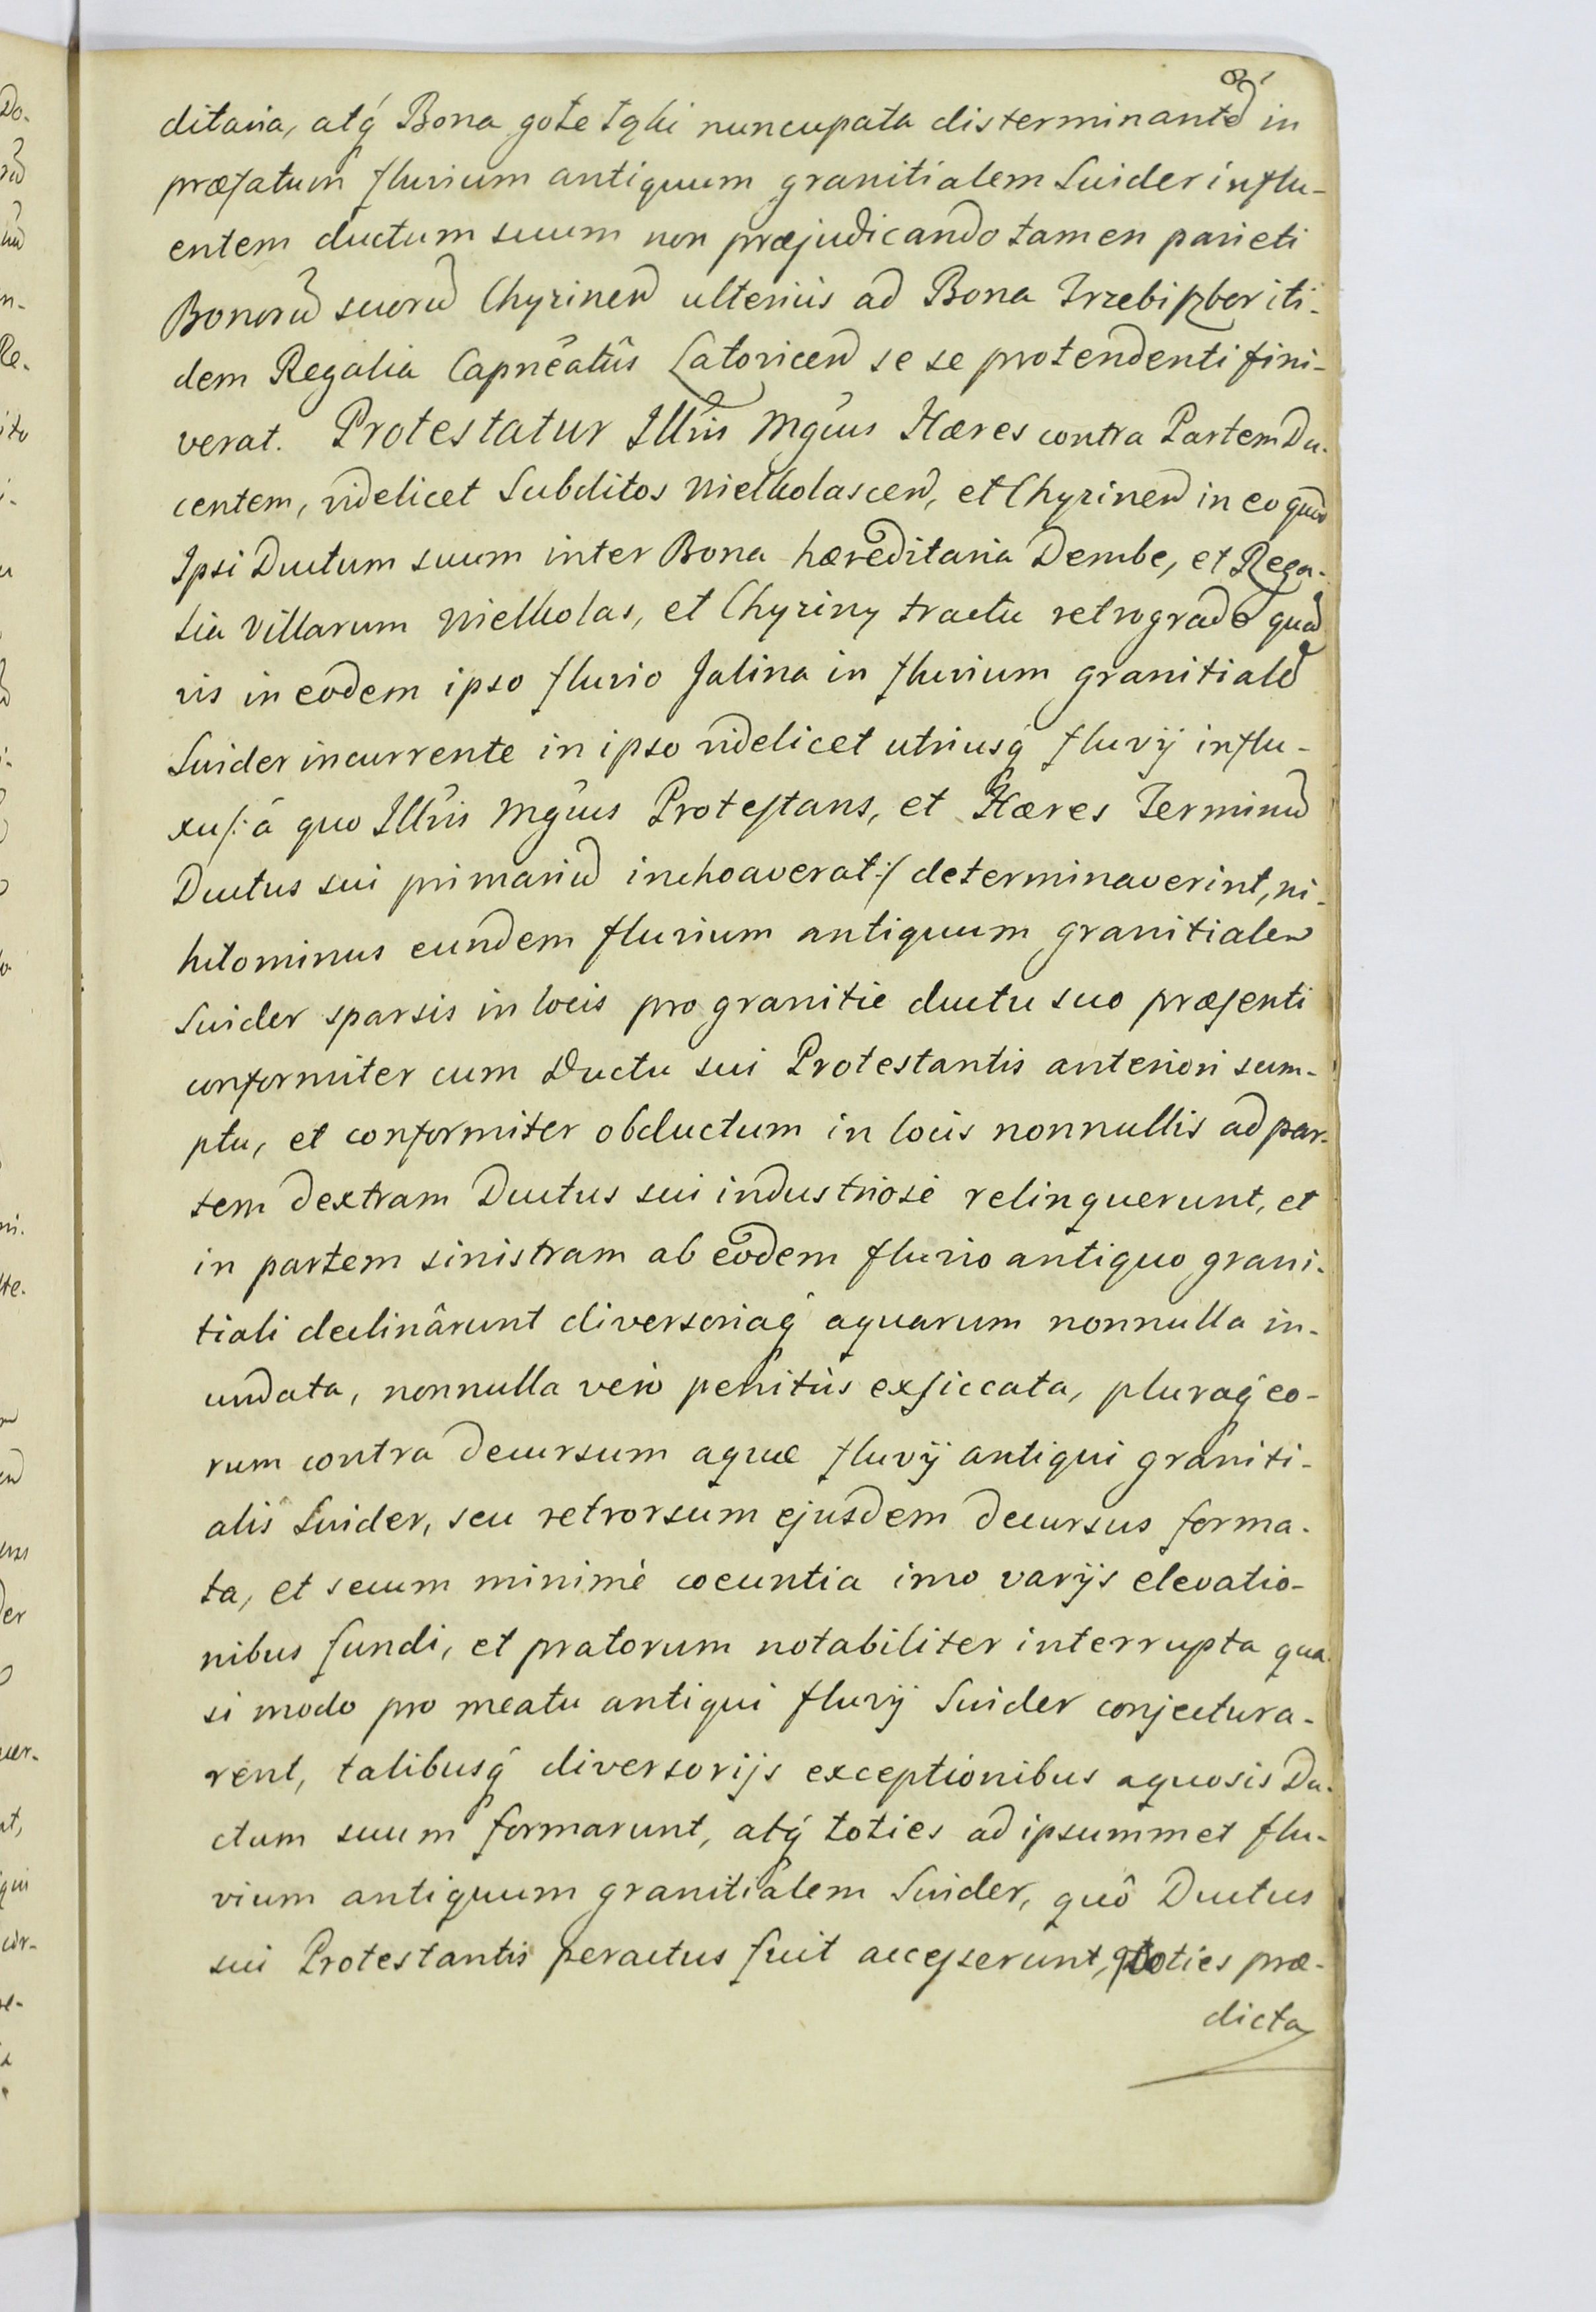 8.
ditaria, atq́ Bona gołe łąki nuncupata disterminantẽ in
præfatum fluvium antiquum granitialem Swider influ-
entem ductum suum non præjudicando tamen parieti
Bonorũ suorũ Chyzineñ ulteriùs ad Bona Trzebiſzbor iti-
dem Regalia Capnẽatûs Latoviceñ se se protendenti fini-
verat. Protestatur Illr̃is Mgcus Hæres contra Partem Du-
centem, videlicet Subditos Wielkolasceñ, et Chyzineñ in eo quod
Ipsi Ductum suum inter Bona hæreditaria Dembe, et Rega-
lia Villarum Wielkolas, et Chyziny tractu retrogrado quã
vis in eodem ipso fluvio Jalina in fluvium granitialẽ
Swider incurrente in ipso videlicet utriusq́ fluvÿ influ-
xu/: à quo Illr̃is Mgcus Proteſtans, et Hæres Terminũ
Ductus sui primariũ inchoaverat :/ determinaverint, ni-
hilominus eundem fluvium antiquum granitialem
Swider sparsis in locis pro granitie ductu suo præſenti
conformiter cum Ductu sui Protestantis anteriori sum-
ptu, et conformiter obductum in locis nonnullis ad par-
tem dextram Ductus sui industriosè relinquerunt, et
in partem sinistram ab eodem fluvio antiquo grani-
tiali declinârunt diversoriaq́ aquarum nonnulla in-
undata, nonnulla verò penitùs exſiccata, pluraq́ eo-
rum contra decursum aquæ fluvÿ antiqui graniti-
alis Swider, seu retrorsum ejusdem decursus forma-
ta, et secum minimè coeuntia imo varÿs elevatio-
nibus fundi, et pratorum notabiliter interrupta qua-
si modo pro meatu antiqui fluvÿ Swider conjectura-
rent, talibusq́ diversorÿs exceptionibus aquosis Du-
ctum suum formarunt, atq́ toties ad ipsummet flu-
vium antiquum granitialem Swider, quô Ductus
sui Protestantis peractus fuit acceſserunt, quoties præ-
dicta